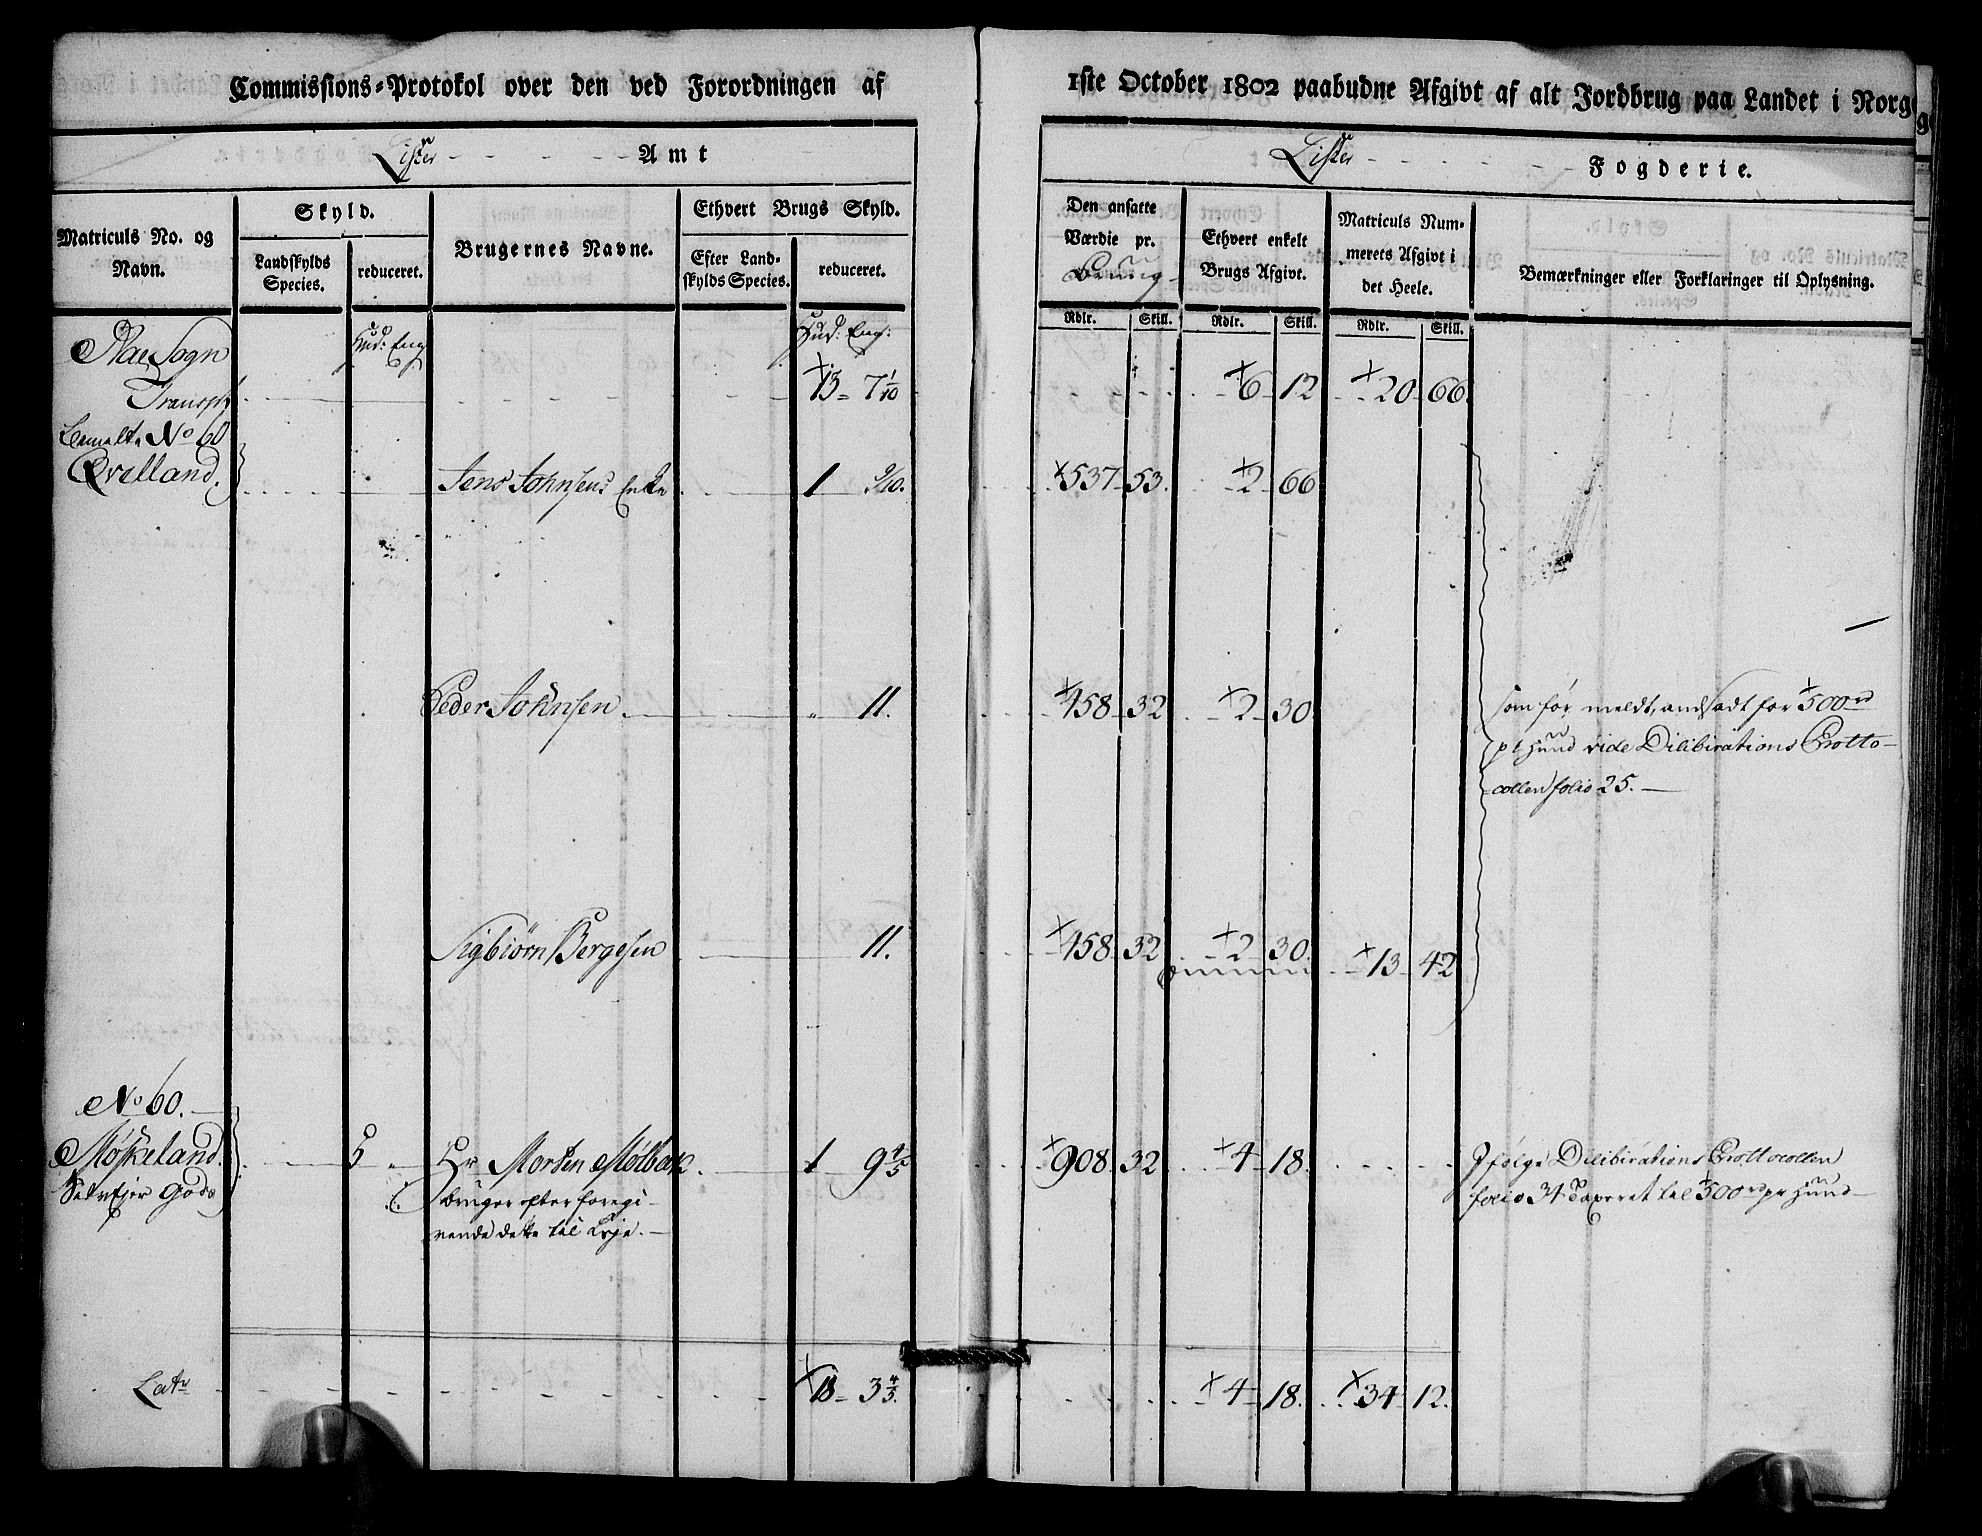 Commissions-Protokol over den ved Forordningen af 1ste October 1802 paabudne Afgivt af alt Jordbrug paa Landet i Norg
Lister Amt
Lister Fogderie.
Matriculs No. og Navn.
Skyld.
Landskylds Species.
reduceret.
Brugernes Navne.
Ethvert Brugs Skyld.
Efter Landskylds Species.
reduceret.
Den ansatte Værdie pr.
Ethvert enkelt Brugs Afgivt.
Matriculs Nummerets Afgivt i det Heele.
Bemærkninger eller Forklaringer til Oplysning.
Rdlr. Skill. Rdlr. Skill. Rdlr. Skill.
Hud: Eng Hud: Eng:
Næs Sogn
Transpt 13 7 1/10 6 12 20 66.
No 60
Qvelland. Jens Johnsens Enke 1 9/10. 537 53. 2 66
Peder Johnsen 11. 458 32 2 30
som før meldt, andsadt for 500rd
pr hund vide Dilibirations Protto-
collen folio 25.
Sigbiørn Bergesen 11. 458 32 2 30. 13 42
No 60.
Møskeland. 5 Hr Morten Mølbak 1 9 4/5 908 32 4 18.
Ifølge Dilibirations Prottocollen
Selvejer Gods bruger efter foregi-
folio 31 Taxeret til 500rd pr hund
vende dette til Leje.
Latr 18 3 4/5. 4 18. 34 12.